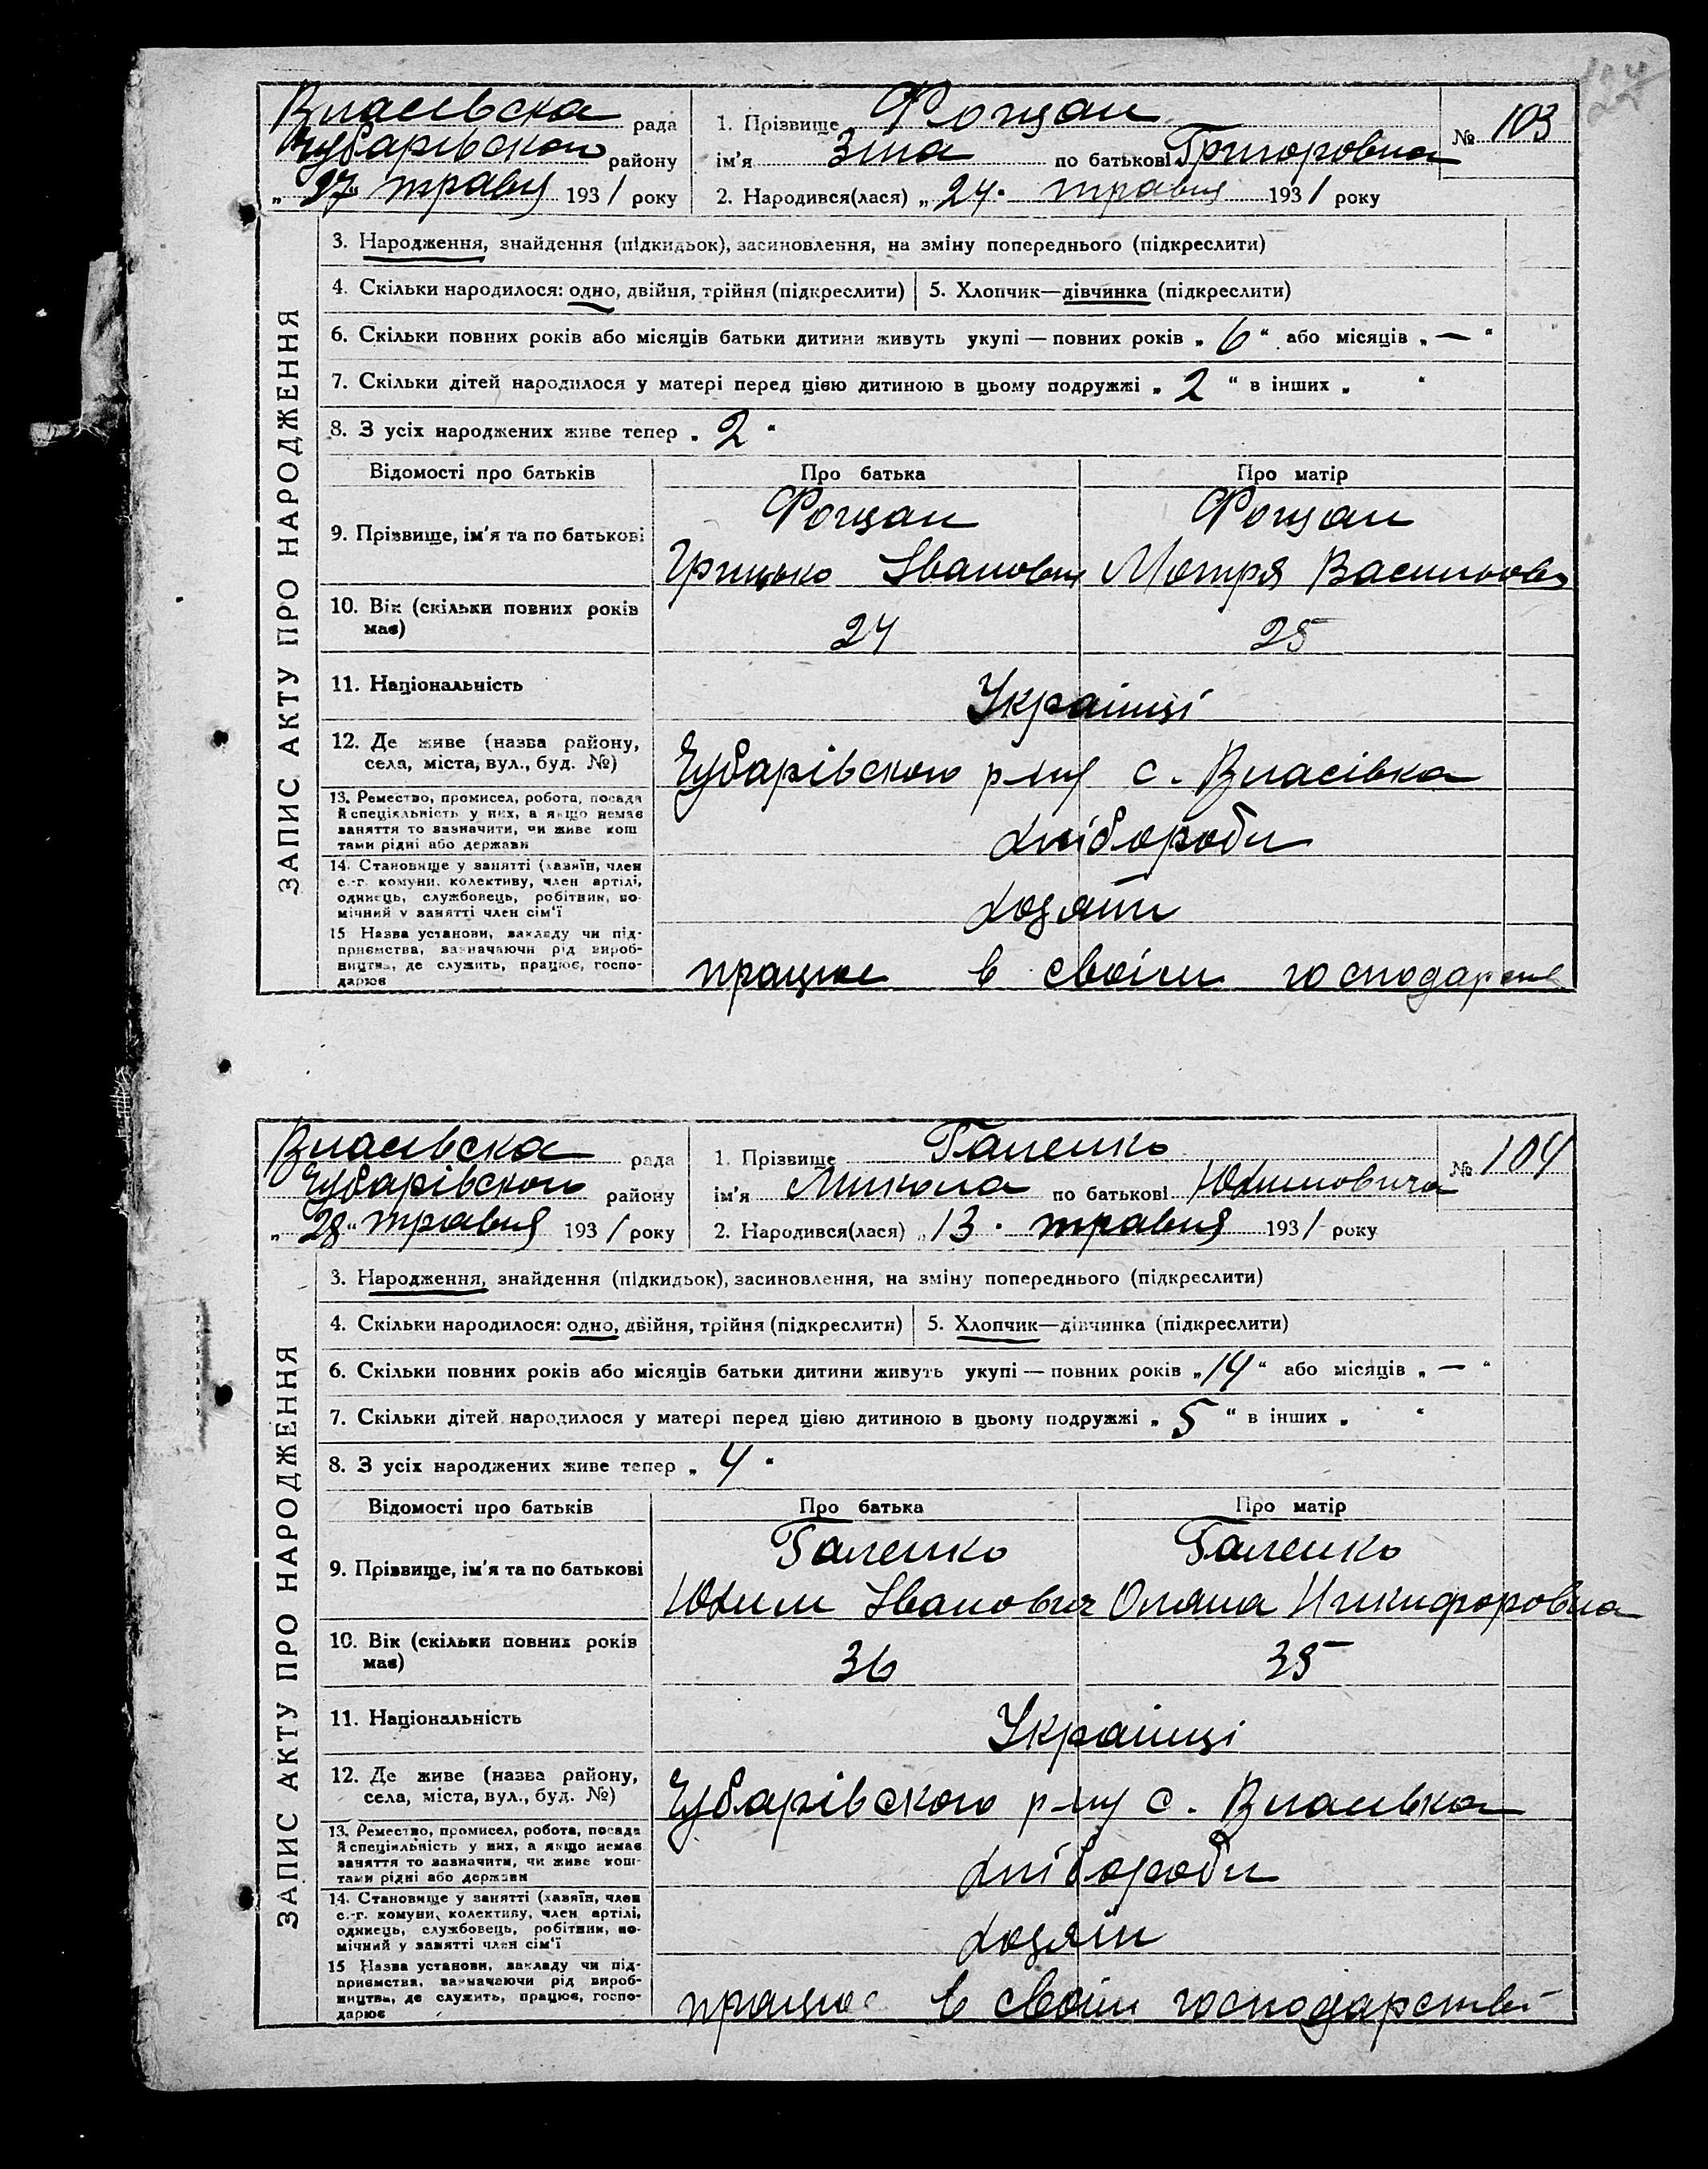 Власівска рада
1. Прізвище Фощан
№ 103
Чубарівского району
ім'я Зіна по батькові Григоровна
„27“ травня 1931 року
2. Народився(лася) „24“ травня 1931 року
ЗАПИС АКТУ ПРО НАРОДЖЕННЯ
3. Народження, знайдення (підкидьок), засиновлення, на зміну попереднього (підкреслити)
4. Скільки народилося: одно, двійня, трійня (підкреслити) 5. Хлопчик—дівчинка (підкреслити)
6. Скільки повних років або місяців батьки дитини живуть укупі — повних років „6“ або місяців „—“
7. Скільки дітей народилося у матері перед цією дитиною в цьому подружжі „2“ в інших „ “
8. З усіх народжених живе тепер „2“
Відомості про батьків Про батька Про матір
9. Прізвище, ім'я та по батькові
Фощан Фощан
Грицько Іванович Мотря Васильовна
10. Вік (скільки повних років має)
24 25
11. Національність
Українці
12. Де живе (назва району, села, міста, вул., буд. №)
Чубарівского р-ну с. Власівка
13. Ремество, промисел, робота, посада
й спеціяльність у них, а якщо немає
заняття то зазначити, чи живе кош
тами рідні або держави
хлібороби
14. Становище у занятті (хазяїн, член
с.-г. комуни, колективу, член артілі,
одинець, службовець, робітник, по-
мічний у занятті член сім'ї
хозяїни
15 Назва установи, закладу чи під-
приємства, зазначаючи рід вироб-
ництва, де служить, працює, госпо-
дарює
працює в своїм господарстві
Власівска рада
1. Прізвище Галенко
№ 104
Чубарівского району
ім'я Микола по батькові Юхимовича
„28“ травня 1931 року
2. Народився(лася) „13“ травня 1931 року
ЗАПИС АКТУ ПРО НАРОДЖЕННЯ
3. Народження, знайдення (підкидьок), засиновлення, на зміну попереднього (підкреслити)
4. Скільки народилося: одно, двійня, трійня (підкреслити) 5. Хлопчик—дівчинка (підкреслити)
6. Скільки повних років або місяців батьки дитини живуть укупі — повних років „14“ або місяців „—“
7. Скільки дітей народилося у матері перед цією дитиною в цьому подружжі „5“ в інших „ “
8. З усіх народжених живе тепер „4“
Відомості про батьків Про батька Про матір
9. Прізвище, ім'я та по батькові
Галенко Галенко
Юхим Іванович Оляна Никифоровна
10. Вік (скільки повних років має)
36 35
11. Національність
Українці
12. Де живе (назва району, села, міста, вул., буд. №)
Чубарівского р-ну с. Власівка
13. Ремество, промисел, робота, посада
й спеціяльність у них, а якщо немає
заняття то зазначити, чи живе кош-
тами рідні або держави
хлібороби
14. Становище у занятті (хазяїн, член
с.-г. комуни, колективу, член артілі,
одинець, службовець, робітник, по-
мічний у занятті член сім'ї
хозяїн
15 Назва установи, закладу чи під-
приємства, зазначаючи рід вироб-
ництва, де служить, працює, госпо-
дарює
працює в своїм господарстві